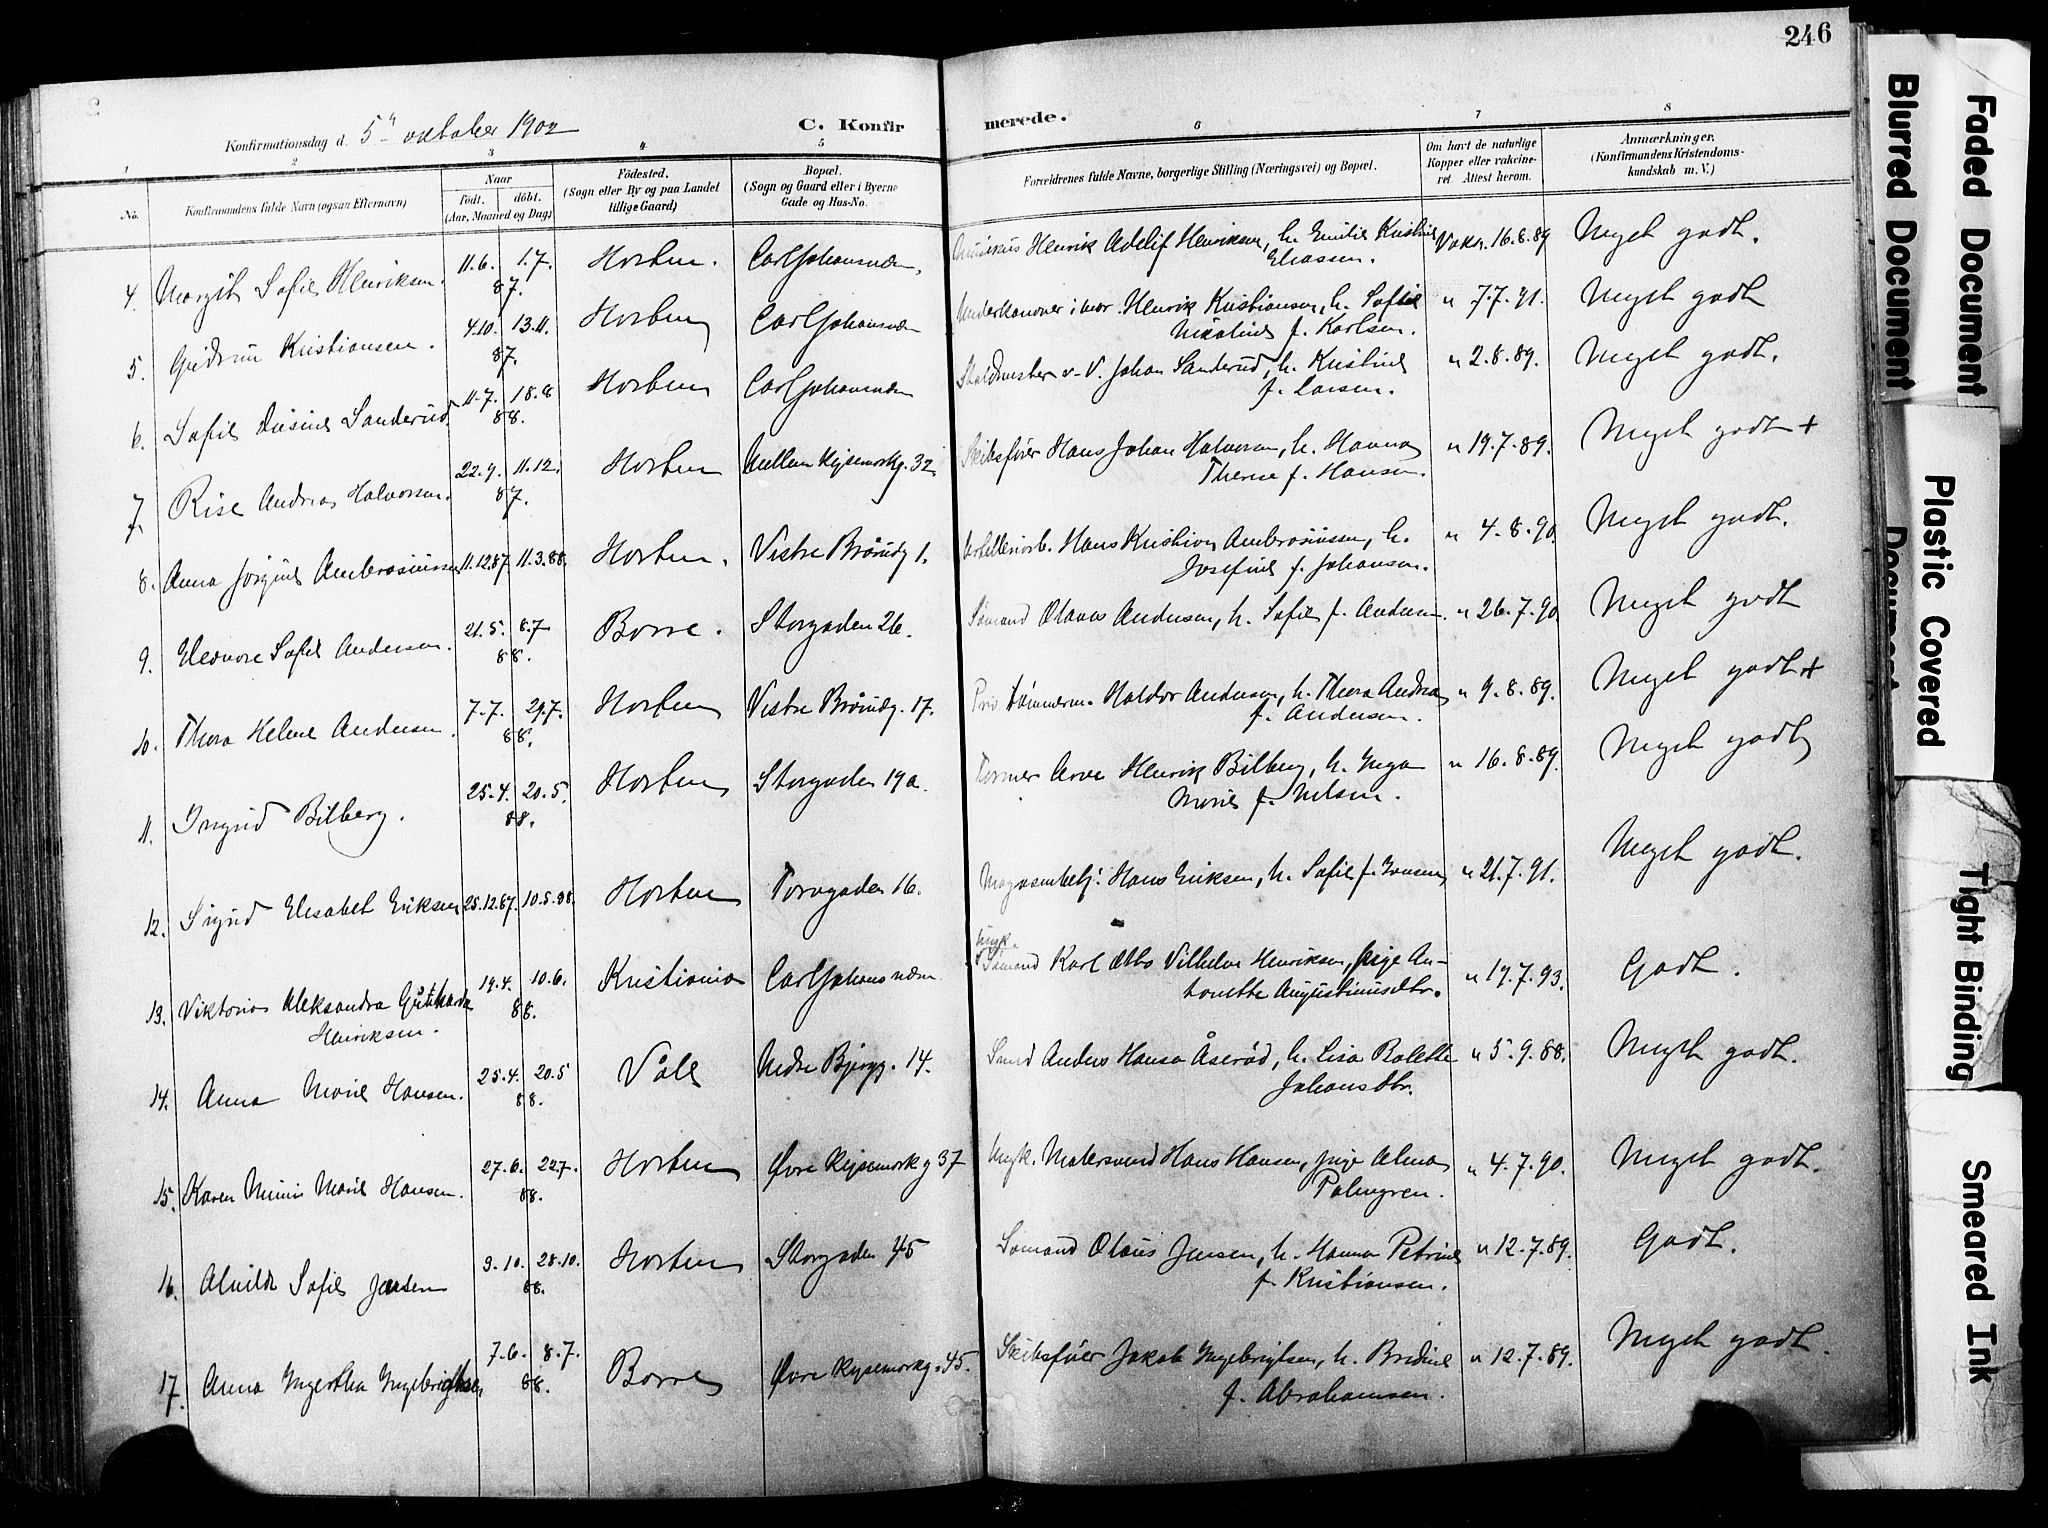 246
Konfirmationsdag d. 5te oktober 1902
C. Konfirmerede.
1 2 3 4 5 6 7 8
No. Konfirmandens fulde Navn (ogsaa Efternavn) Naar født. døbt. (Aar, Maaned og Dag) Fødested. (Sogn eller By og paa Landet tillige Gaard) Bopæl. (Sogn og Gaard eller i Byerne Gade og Hus-No. Forældrenes fulde Navne, borgerlige Stilling (Næringsvei) og Bopæl. Om havt de naturlige Kopper eller vakcineret. Attest herom. Anmærkninger. (Konfirmandens Kristendomskundskab m. V.)
4. Margit Sofie Henriksen. 11.6. 1.7. 87. Horten. Carl Johansværn. Henrik Adolf Henriksen, h. Emilie Kristine Eliassen. Vakc. 16.8.89 Meget godt.
5. Gudrun Kristiansen. 4.10. 13.11. 87. Horten Carl Johansværn Underkanoner i mar. Henrik Kristiansen, h. Sofie Nikoline f. Karlsen. " 7.7.91. Meget godt
6. Sofie Lusine Sanderud. 11.7. 18.8 88. Horten Carl Johansværn Staldmester v. V. Johan Sanderud, h. Kristine f. Larsen. " 2.8.89. Meget godt.
7. Rise Andrea Halvorsen. 22.9. 11.12. 87. Horten Mellem Kejsemarkg. 32 Skibsfører Hans Johan Halvorsen, h. Hanna Therese f. Hansen. " 19.7.89. Meget godt +
8. Anna Jørgine Ambrosiussen 11.12.87. 11.3.88. Horten. Vestre Brårudg 1. Artilleriarb. Hans Kristian Ambrosiussen, h. Josefine f. Johansen. " 4.8.90. Meget godt.
9. Eleonore Sofie Andersen. 21.5. 8.7 88. Borre. Storgaden 26. Sømand Olaves Andersen, h. Sofie f. Andersen. " 26.7.90. Meget godt
10. Thora Helene Andersen. 7.7. 29.7. 88. Horten Vestre Brårudg. 17. Priv tømmerm. Haldor Andersen, h. Thora Andrea f. Andersen. " 9.8.89. Meget godt +
11. Ingrid Bilberg. 25.4. 20.5. 88. Horten Storgaden 19a. Former Arve Henrik Bilberg, h. Inga Marie f. Nilsen. " 16.8.89. Meget godt
12. Sigrid Elisabet Eriksen 25.12.87. 10.5.88. Horten Torvgaden 16. Magasinbetj. Hans Eriksen, h. Sofie f. Jonsen, " 21.7.91. Meget godt.
13. Viktoria Aleksandra Henriksen. 19.4. 10.6. 88. Kristiania Carl Johansværn Ungk. Sømand Karl Otto Vilhelm Henriksen, pige Antonette Augustinusdtr. " 19.7.93. Godt.
14. Anna Marie Hansen. 25.4. 20.5 88. Våle Nedre Bjergg. 14. Smed Anders Hansen Åserød, h. Lisa Rolette Johansdtr. " 5.9.88. Meget godt.
15. Karen Mimi Marie Hansen. 27.6. 22.7. 88. Horten Øvre Kejsemarkg 37 Ungk. Malersvend Hans Hansen, pige Alma Palmgren. " 4.7.90. Meget godt.
16. Alvilde Sofie Jensen 3.10. 28.10. 88. Horten Storgaden 45 Sømand Olaus Jensen, h. Hanna Petrine f. Kristiansen. " 12.7.89. Godt.
17. Anna Ingertha Ingebrigtsen 7.6. 8.7. 88. Borre Øvre Kejsemarkg. 45. Skibsfører Jakob Ingebrigtsen, h. Bredine f. Abrahamsen. " 12.7.89. Meget godt.
Faded Document
Blurred Document
Plastic Covered Document
Tight Binding
Smeared Ink